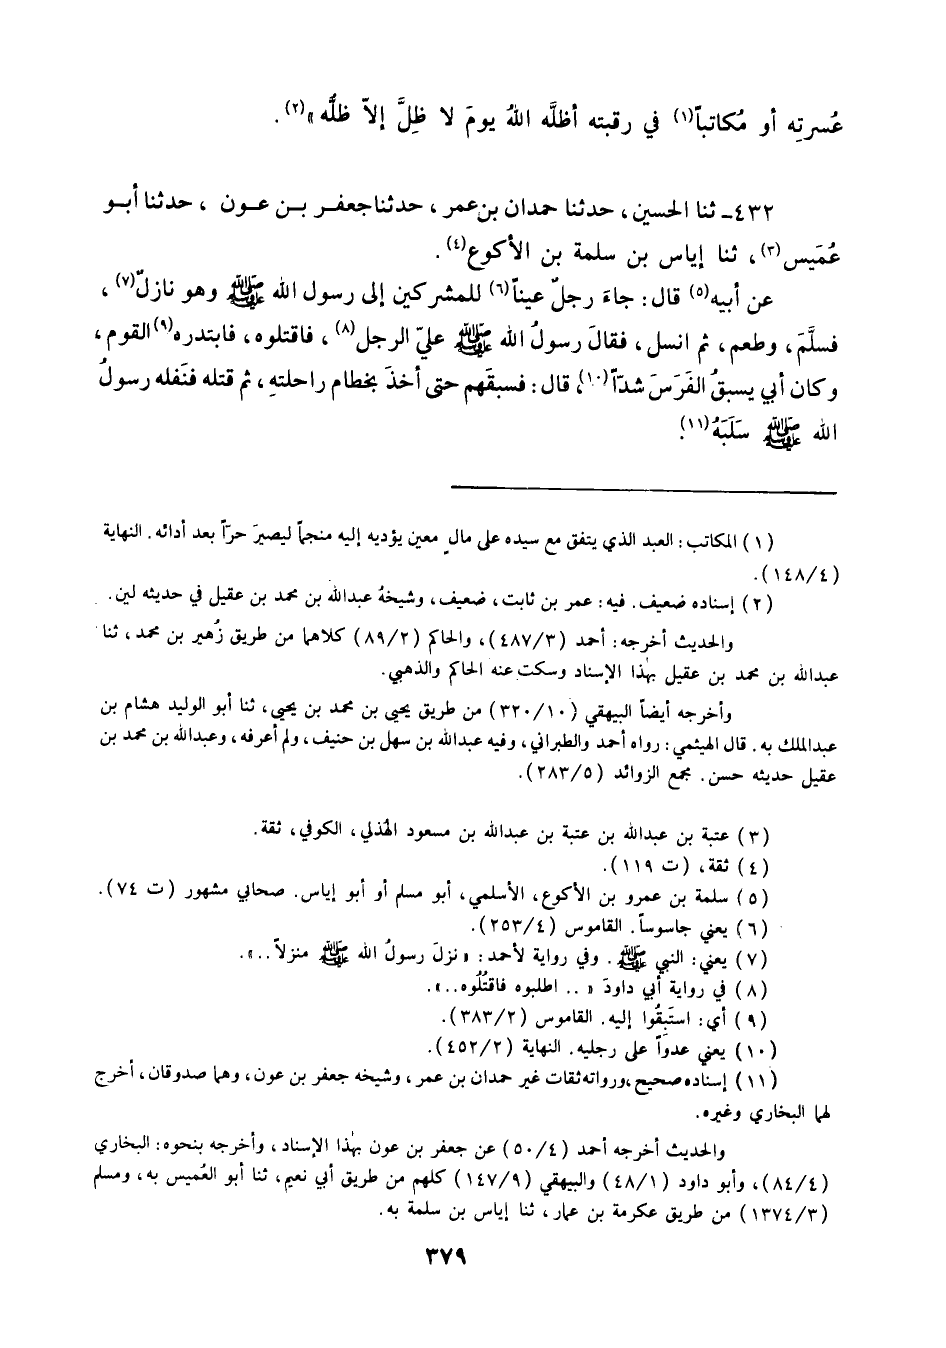 عُسرتِه أو مُكاتباً(١) في رقبته أظلَّه اللهُ يومَ لا ظِلَّ إلاّ ظلُّه »(٢).
٤٣٢ـ ثنا الحسين، حدثنا حمدان بن عمر، حدثنا جعفر بن عون ، حدثنا أبو
عُمَيس(٣)، ثنا إياس بن سلمة بن الأكوع(٤).
عن أبيه(٥) قال: جاءَ رجلٌ عيناً(٦) للمشركين إلى رسول الله ﷺ وهو نازلٌ(٧)،
فسلَّمَ، وطعم، ثم انسل، فقالَ رسولُ الله ﷺ عليّ الرجل(٨)، فاقتلوه، فابتدره(٩) القوم،
وكان أبي يسبقُ الفَرَسَ شدّاً(١٠)، قال: فسبقَهم حتى أخذَ بخطام راحلتهِ، ثم قتله فنَفله رسولُ
الله ﷺ سَلَبَهُ(١١).
(١) المكاتب: العبد الذي يتفق مع سيده على مالٍ معين يؤديه إليه منجماً ليصيرَ حرّاً بعد أدائه. النهاية
(١٤٨/٤).
(٢) إسناده ضعيف. فيه: عمر بن ثابت، ضعيف، وشيخهُ عبدالله بن محمد بن عقيل في حديثه لين.
والحديث أخرجه: أحمد (٤٨٧/٣)، والحاكم (٨٩/٢) كلاهما من طريق زُهير بن محمد، ثنا
عبدالله بن محمد بن عقيل بهٰذا الإسناد وسكت عنه الحاكم والذهبي.
وأخرجه أيضاً البيهقي (٣٢٠/١٠) من طريق يحيى بن محمد بن يحيى، ثنا أبو الوليد هشام بن
عبدالملك به. قال الهيثمي: رواه أحمد والطبراني، وفيه عبدالله بن سهل بن حنيف، ولم أعرفه، وعبدالله بن محمد بن
عقيل حديثه حسن. مجمع الزوائد (٢٨٣/٥).
(٣) عتبة بن عبدالله بن عتبة بن عبدالله بن مسعود الهُذلي، الكوفي، ثقة.
(٤) ثقة، (ت ١١٩).
(٥) سلمة بن عمرو بن الأكوع، الأسلمي، أبو مسلم أو أبو إياس. صحابي مشهور (ت ٧٤).
(٦) يعني جاسوساً. القاموس (٢٥٣/٤).
(٧) يعني: النبي ﷺ. وفي رواية لأحمد: «نزلَ رسولُ الله ﷺ منزلاً..».
(٨) في رواية أبي داودَ « .. اطلبوه فاقتُلُوه..».
(٩) أي: استَبِقُوا إليه. القاموس (٣٨٣/٢).
(١٠) يعني عدواً على رجليه. النهاية (٤٥٢/٢).
(١١) إسناده صحيح، ورواته ثقات غير حمدان بن عمر، وشيخه جعفر بن عون، وهما صدوقان، أخرج
لهما البخاري وغيره.
والحديث أخرجه أحمد (٥٠/٤) عن جعفر بن عون بهٰذا الإسناد، وأخرجه بنحوه: البخاري
(٨٤/٤)، وأبو داود (٤٨/١) والبيهقي (١٤٧/٩) كلهم من طريق أبي نعيم، ثنا أبو العُميس به، ومسلم
(١٣٧٤/٣) من طريق عكرمة بن عمار، ثنا إياس بن سلمة به.
٣٧٩